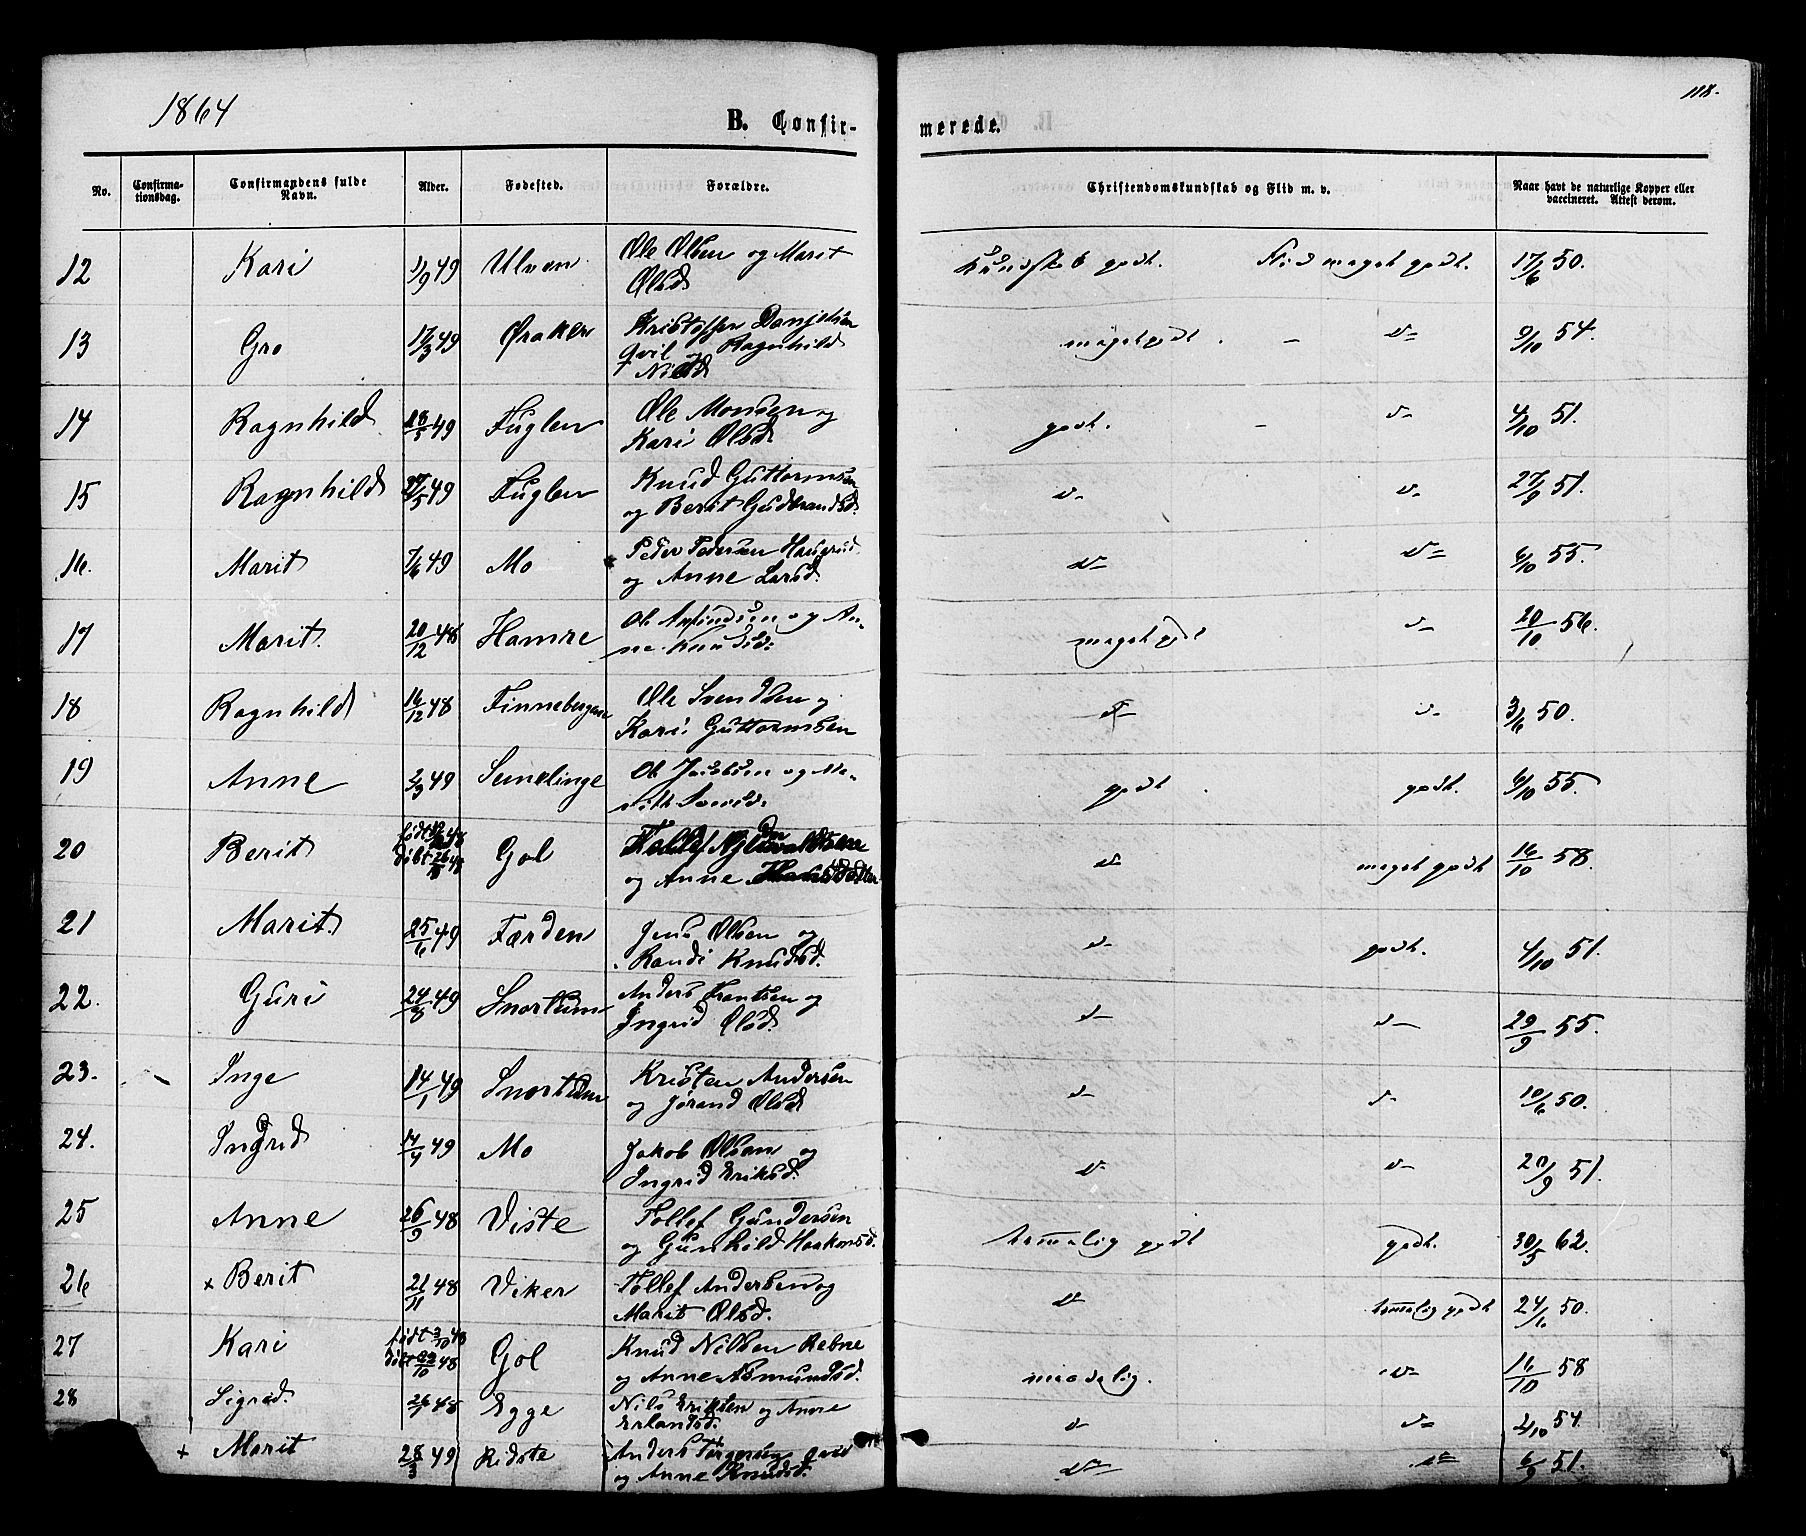 1864
118.
B. Confir-
merede.
No.
Confirma-
tionsdag.
Confirmandens fulde
Navn.
Alder.
Fødested.
Forældre.
Christendomskundskab og Flid m. v.
Naar havt de naturlige Kopper eller
vaccineret. Attest derom.
12 Kari 1/9 49 Ulven Ole Olsen og Marit
Olsd Kundskab godt. Flid meget godt. 17/6 50.
13 Gro 17/3 49 Øraker Kristoffer Danjelsen
Qvil og Ragnhild
Nielsd meget godt – d– 9/10 54.
14 Ragnhild 28/5 49 Fuglen Ole Monsen og
Kari Olsd. godt. – d– 4/10 51.
15 Ragnhild 49 Fuglen Knud Guttormsen
og Berit Gudbrandsd. d– d– 27/9 51.
16. Marit 7/6 49 Mo Peder Pedersen Haugrud
og Anne Larsd. d– d– 6/10 55.
17 Marit. 20/12 48 Hamre Ole Arfindsen og An-
ne Knudsd. meget godt d– 20/10 56.
18 Ragnhild 16/12 48 Finnebergene Ole Svendsen og
Kari Guttormsen d– d– 3/6 50.
19 Anne 2/3 49 Semelinge Ole Jacobsen og Ma-
rith godt godt. 6/10 55.
20 Berit født 48
døbt 48 Gol
og Anne d– meget godt 16/10 58
21 Marit. 25/6 49 Færden Jens Olsen og
Randi Knudsd. d– godt. 4/10 51.
22. Guri 49 Snortum Anders Frantsen og
Ingrid Olsd. d– d– 29/9 55.
23. Inge 14/1 49 Snortum Kristen Andersen
og Jørand Olsd d– d– 10/6 50.
24. Ingrid 49 Mo Jakob Olsen og
Ingrid Eriksd. d– d– 51.
25 Anne 26/9 48 Viste Tollef Gundersen
og Gunhild Haakonsd. temmelig godt godt. 30/5 62.
26 × Berit 21/11 48 Viker Tollef Andersen og
Marit Olsd. d– temmelig godt 24/6 50.
27 Kari født 3/10 48
døbt 48 Gol Knud Nilsen Rebne
og Anne Asmundsd. maadelig. d– 16/10 58
28 Sigrid. 48 Egge Nils Eriksen og Anne
Erlandsd. d– d– 54.
+ Marit 28/3 49 Ridste Anders Torgersen qvil
og Anne Knudsd. d– d– 6/9 51.